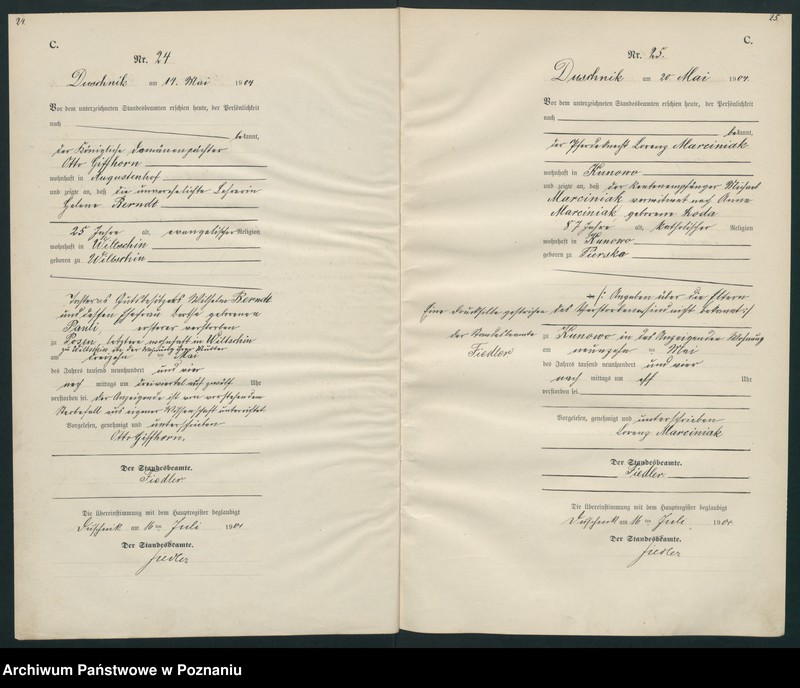 24.
C.
Nr. 24
Duschnik am 14. Mai 1904
Vor dem unterzeichneten Standesbeamten erschien heute, der Persönlichkeit
nach
bekannt,
der Königliche Domänenpächter
Otto Giffhorn
wohnhaft in Augustenhof
und zeigte an, daß die unverehelichte Lehrerin
Helene Berndt
25 Jahre alt, evangelischer Religion
wohnhaft in Wiltschin
geboren zu Wiltschin
Tochter des Gutsbesitzers Wilhelm Berndt
und dessen Ehefrau geborenen
Pauli, ersterer verstorben
zu Posen, letztere wohnhaft in Wiltschin
zu Wiltschin in der Wohnung ihrer Mutter
am dreizehn ten Mai
des Jahres tausend neunhundert und vier
nach mittags um dreiviertel auf zwölf Uhr
verstorben sei. Der Anzeigende ist von vorstehendem
Sterbefall aus eigener Wissenschaft unterrichtet.
Vorgelesen, genehmigt und unterschrieben
Otto Giffhorn.
Der Standesbeamte.
Fiedler
Die Übereinstimmung mit dem Hauptregister beglaubigt
Duschnik am 16 ten Juli 1904
Der Standesbeamte.
Fiedler
25.
C.
Nr. 25.
Duschnik am 20 Mai 1904.
Vor dem unterzeichneten Standesbeamten erschien heute, der Persönlichkeit
nach
bekannt,
der Pferdeknecht Lorenz Marciniak
wohnhaft in Kunowo
und zeigte an, daß der Rentenempfänger Michael
Marciniak verwitwet nach Anna
Marciniak geborene Koda
87 Jahre alt, katholischer Religion
wohnhaft in Kunowo
geboren zu Piersko
/: Angaben über die Eltern
des Verstorbenen sind nicht bekannt :/
Eine Druckstelle gestrichen
der Standesbeamte
Fiedler
zu Kunowo in des Anzeigenden Wohnung
am neunzehn ten Mai
des Jahres tausend neunhundert und vier
nach mittags um elf Uhr
verstorben sei.
Vorgelesen, genehmigt und unterschrieben
Lorenz Marciniak
Der Standesbeamte.
Fiedler
Die Übereinstimmung mit dem Hauptregister beglaubigt
Duschnik am 16 ten Juli 1904
Der Standesbeamte.
Fiedler
Archiwum Państwowe w Poznaniu